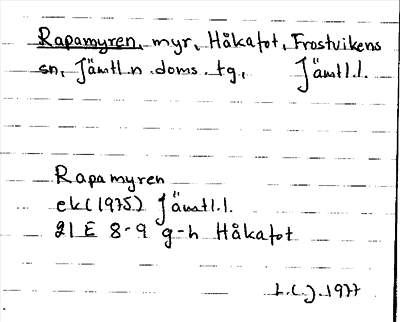 Rapamyren, myr, Håkafot, Frostvikens
sn, Jämtl n .doms. tg, Jämtl.l.
Rapamyren
ek(1975) Jämtl.l.
21 E 8-9 g-h Håkafot
1977